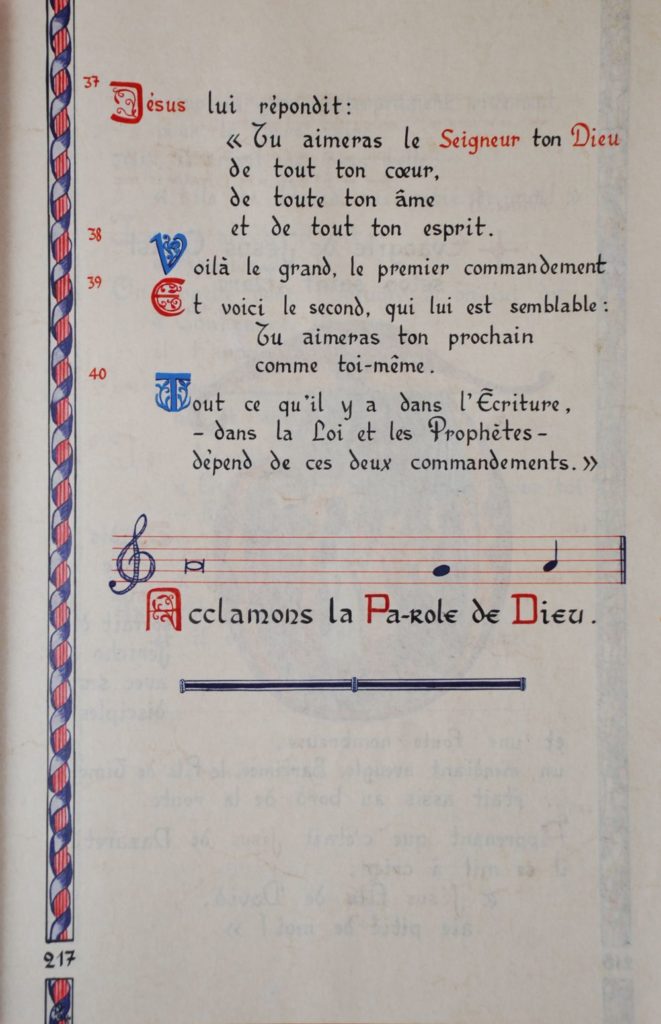 37
Jésus lui répondit:
« Tu aimeras le Seigneur ton Dieu
de tout ton cœur,
de toute ton âme
et de tout ton esprit.
38
Voilà le grand, le premier commandement
39
Et voici le second, qui lui est semblable:
Tu aimeras ton prochain
comme toi-même.
40
Tout ce qu'il y a dans l'Écriture,
- dans la Loi et les Prophètes -
dépend de ces deux commandements. »
Acclamons la Pa-role de Dieu.
217